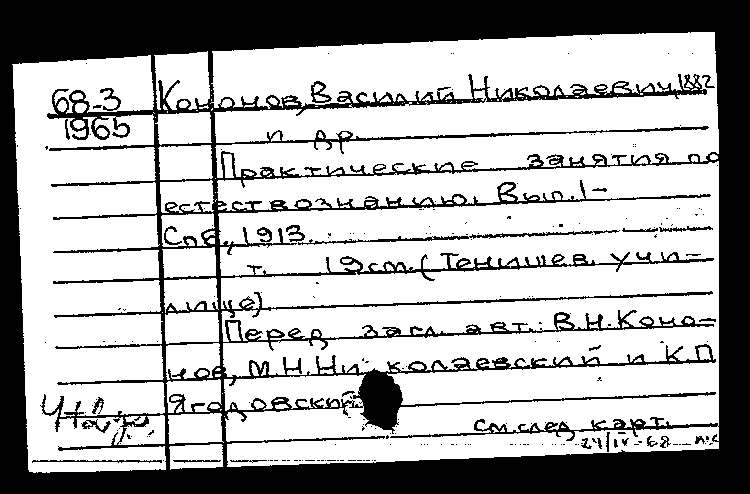 68-3 Кононов, Василий Николаевич, 1882
1965
и др.
Практические занятия по
естествознанию. Вып. 1-
Спб., 1913.
т. 19 cm. (Тенишев. учи-
лище)
Перед загл. авт.: В.Н. Коно-
нов, М.Н. Николаевский и К.П.
Ягодовский
см. след. карт.
24/IV-68